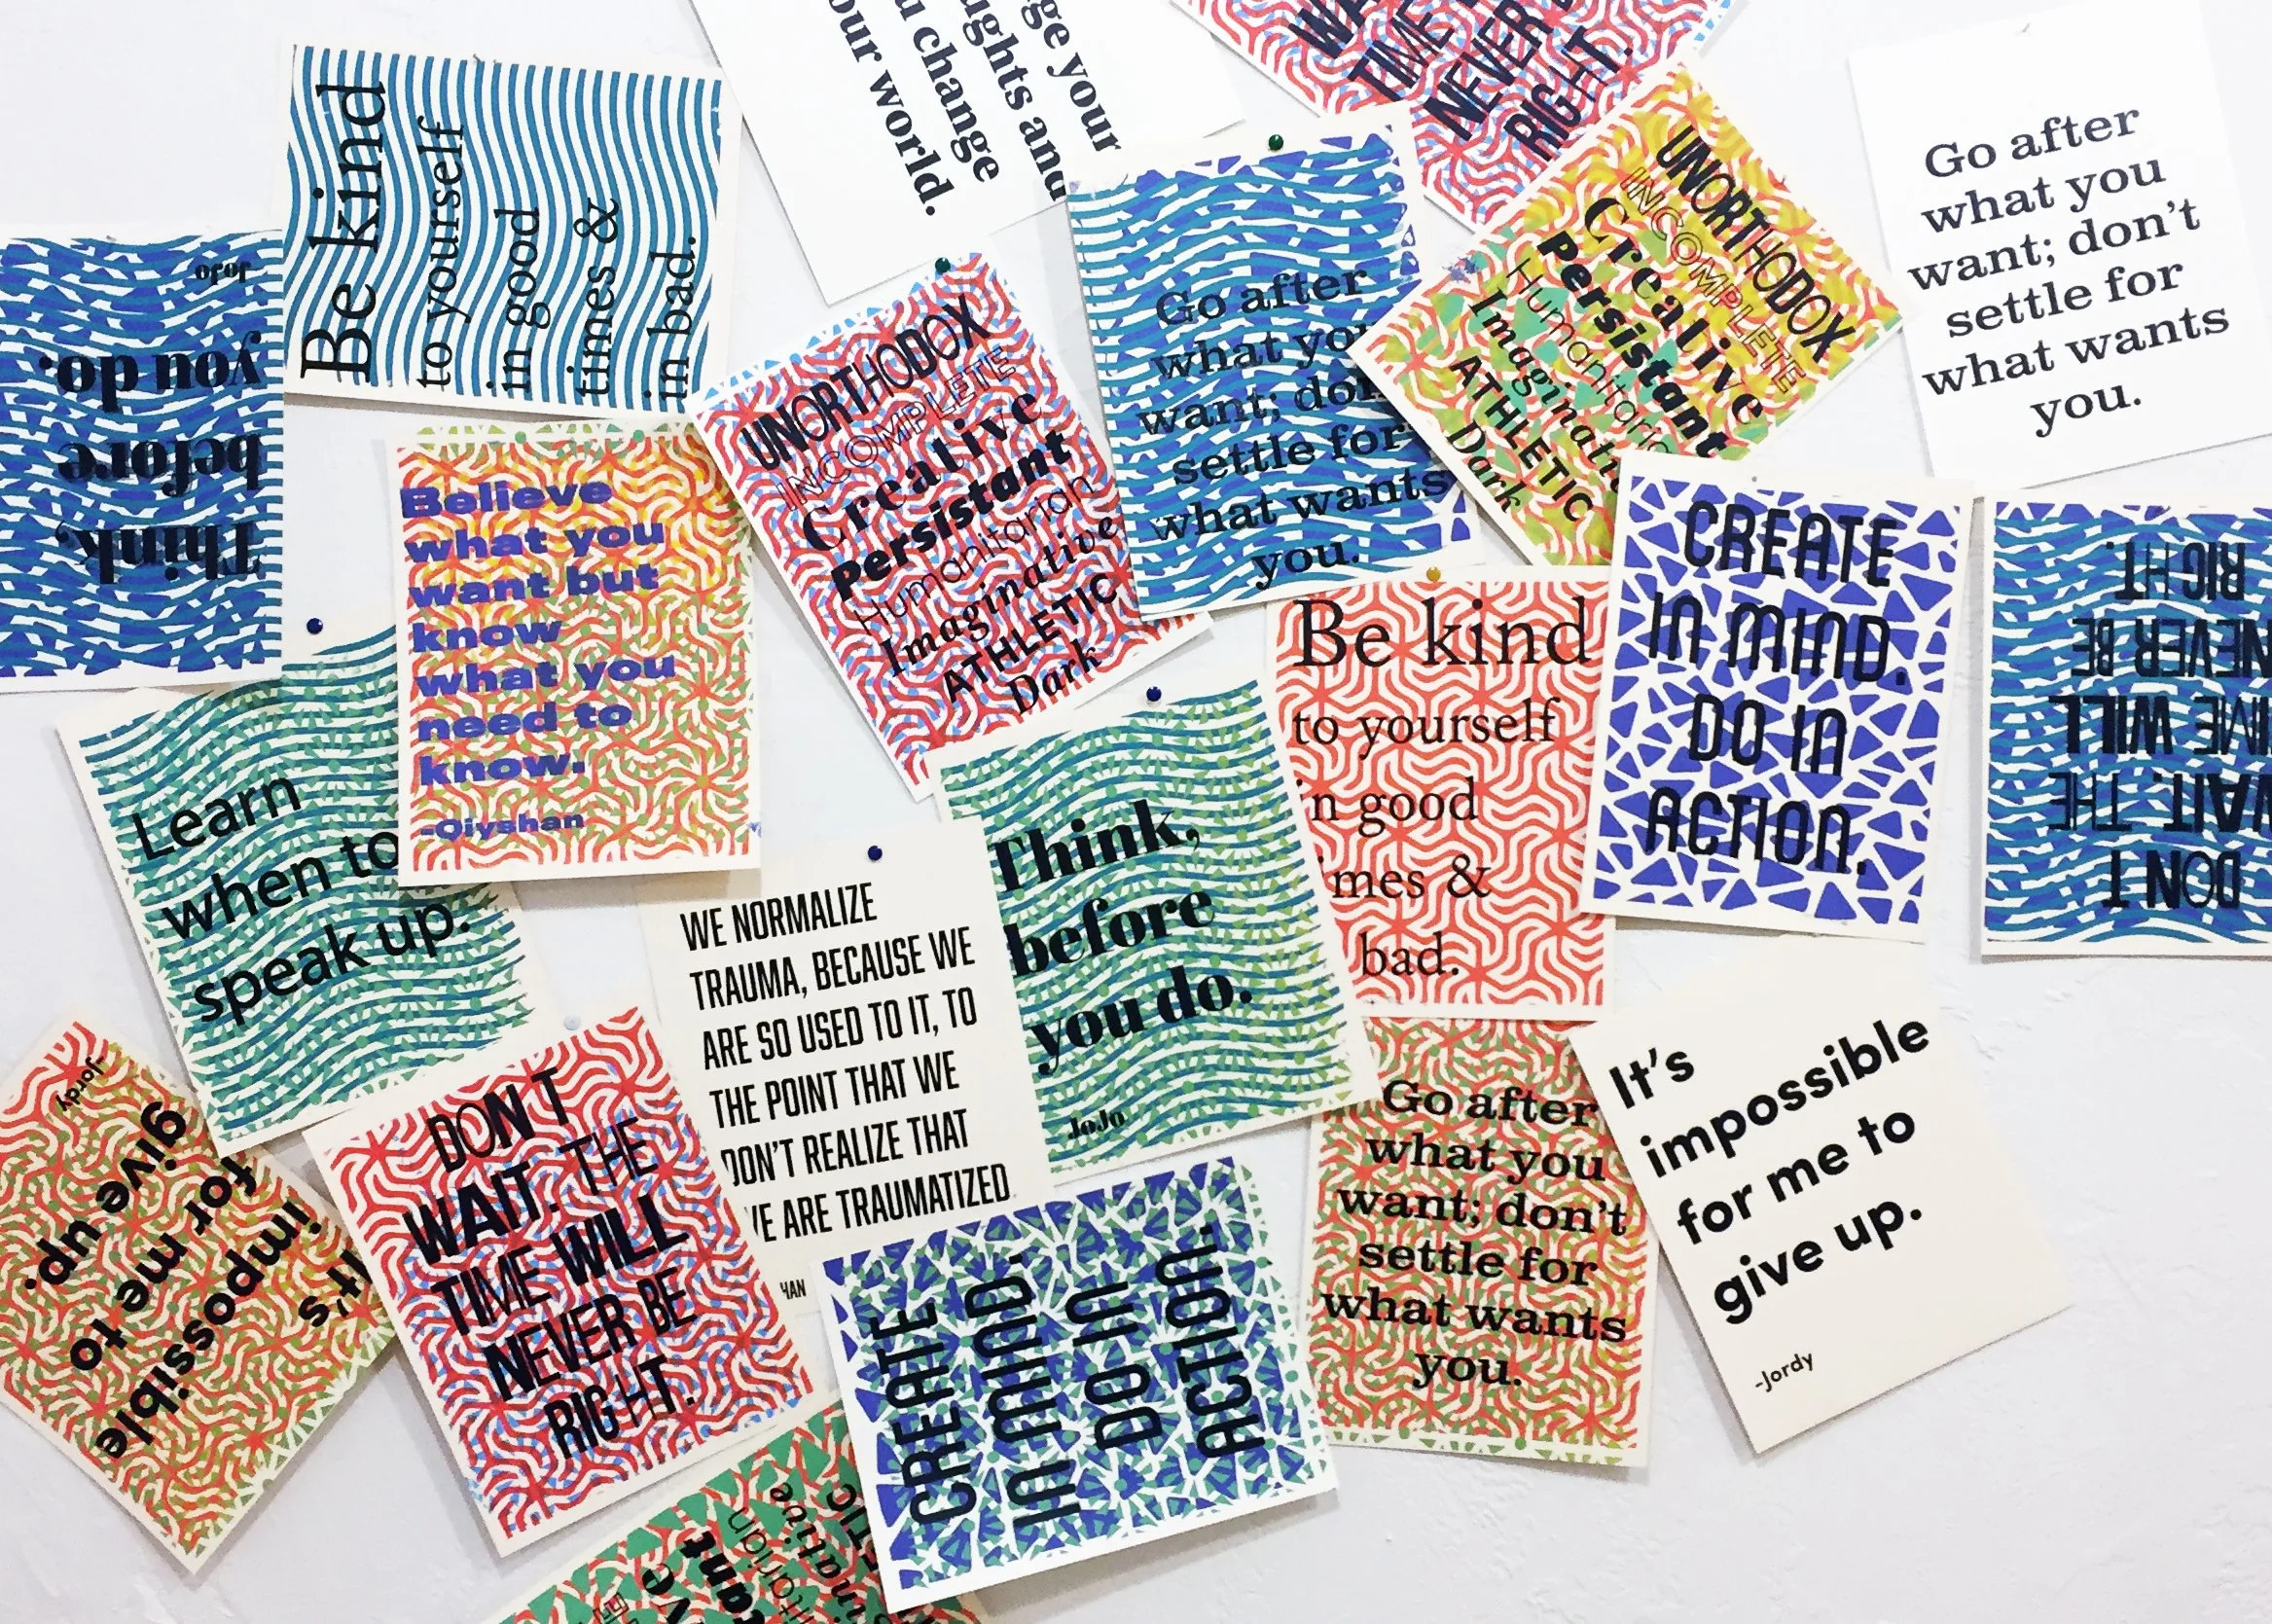 Be kind
to yourself
in good
times &
in bad.
your
and
change
world.
TIME
NEVER
RIGHT.
Go after
what you
want; don't
settle for
what wants
you.
Think,
before
you do.
JoJo
UNORTHODOX
INCOMPLETE
Creative
Persistant
Humanitarian
Imaginative
ATHLETIC
Dark
Go after
what
want;
settle for
what wants
you.
UNORTHODOX
INCOMPLETE
Creative
Persistant
ATHLETIC
Dark
Believe
what you
want but
know
what you
need to
know.
-Qiyshan
CREATE
IN MIND.
DO IN
ACTION.
DON'T
WAIT. THE
WILL
NEVER BE
RIGHT.
Learn
when to
speak up.
Be kind
to yourself
good
&
bad.
WE NORMALIZE
TRAUMA, BECAUSE WE
ARE SO USED TO IT, TO
THE POINT THAT WE
DON'T REALIZE THAT
ARE TRAUMATIZED
Think,
before
you do.
JoJo
It's
impossible
for me to
give up.
-Jordy
DON'T
WAIT. THE
TIME WILL
NEVER BE
RIGHT.
Go after
what you
want; don't
settle for
what wants
you.
It's
impossible
for me to
give up.
-Jordy
CREATE
IN MIND.
DO IN
ACTION.